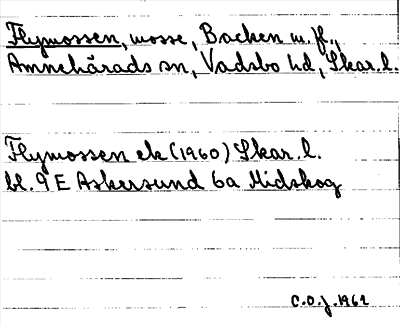 Flymossen, mosse, Backen m. fl.,
Amnehärads sn, Vadsbo hd, Skar. l.
Flymossen ek (1960) Skar. l.
bl. 9 E Askersund 6a Midskog
C.O.J. 1962